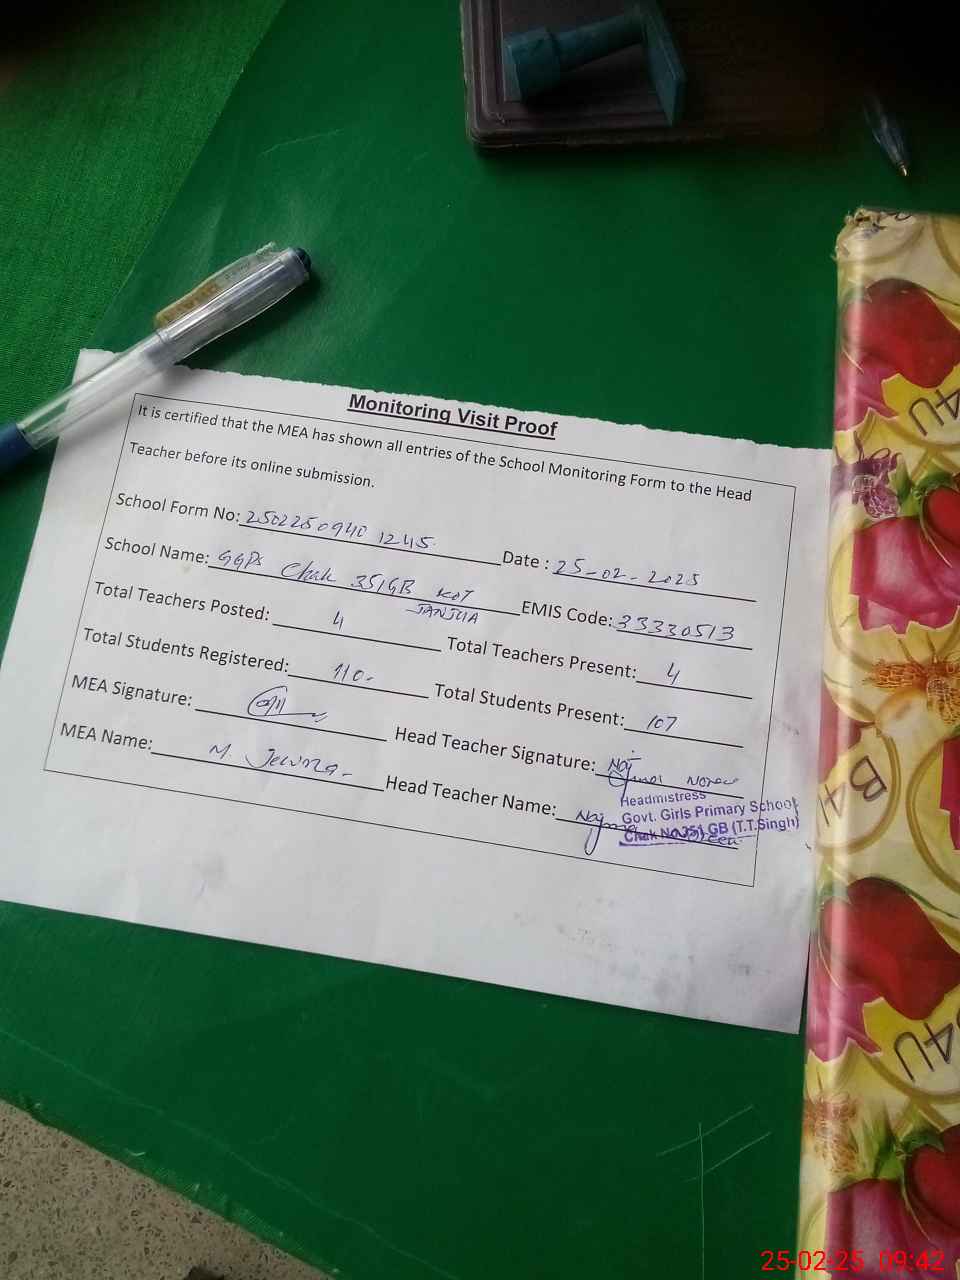 Monitoring Visit Proof
It is certified that the MEA has shown all entries of the School Monitoring Form to the Head
Teacher before its online submission.
School Form No: 2502250940 1245 Date : 25-02-2025
School Name: GGPS Chak 351GB KOT JANJUA EMIS Code: 33330513
Total Teachers Posted: 4 Total Teachers Present: 4
Total Students Registered: 110 Total Students Present: 107
MEA Signature: Head Teacher Signature:
MEA Name: M. Head Teacher Name:
Headmistress
Govt. Girls Primary School
Chak No.351 GB (T.T.Singh)
B4U
B4U
B4U
25-02-25 09:42